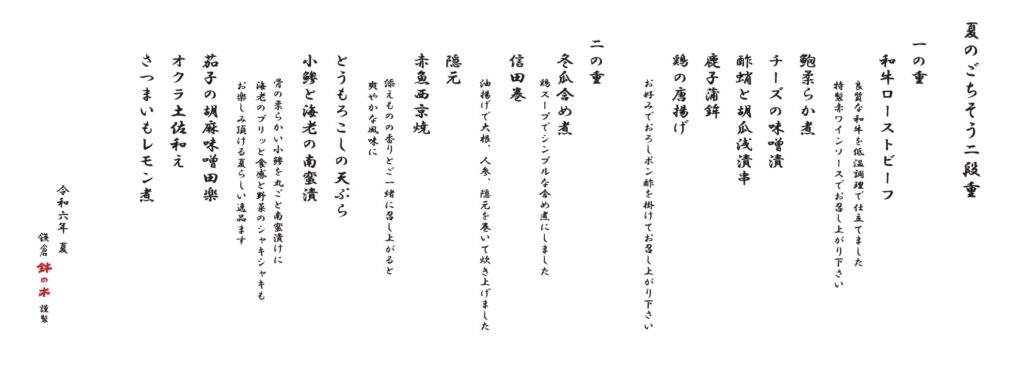 夏のごちそう二段重
一の重
和牛ローストビーフ
良質な和牛を低温調理で仕立てました
特製赤ワインソースでお召し上がり下さい
鮑柔らか煮
チーズの味噌漬
酢蛸と胡瓜浅漬串
鹿子蒲鉾
鶏の唐揚げ
お好みでおろしポン酢を掛けてお召し上がり下さい
二の重
冬瓜含め煮
鶏スープでシンプルな含め煮にしました
信田巻
油揚げで大根、人参、隠元を巻いて炊き上げました
隠元
赤魚西京焼
添えものの香りとご一緒に召し上がると
爽やかな風味に
とうもろこしの天ぷら
小鯵と海老の南蛮漬
骨の柔らかい小鯵を丸ごと南蛮漬けに
海老のプリッと食感と野菜のシャキシャキも
お楽しみ頂ける夏らしい逸品ます
茄子の胡麻味噌田楽
オクラ土佐和え
さつまいもレモン煮
令和六年 夏
鎌倉 鉢の木 謹製